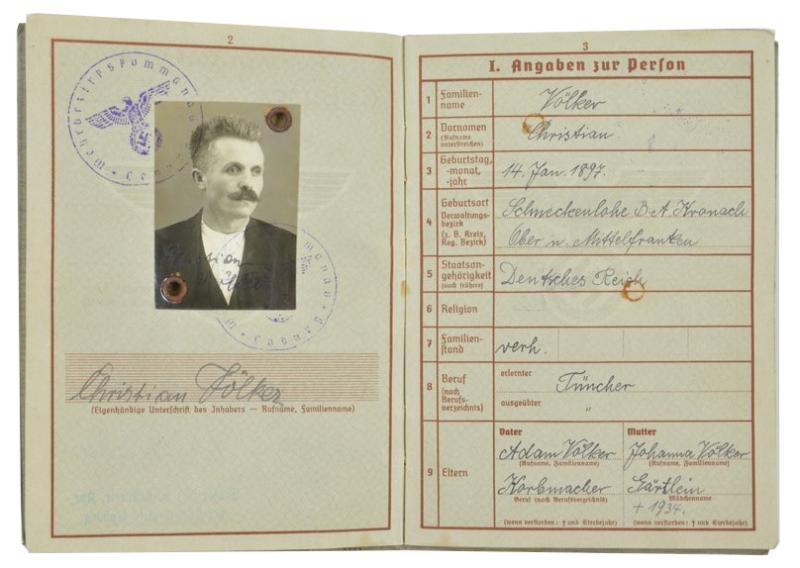 2
Wehrbezirkskommando
Christian
Völker
Christian Völker
(Eigenhändige Unterschrift des Inhabers — Rufname, Familienname)
3
I. Angaben zur Person
1 Familien-
name
Völker
2 Vornamen
(Rufname
unterstreichen)
Christian
3 Geburtstag,
-monat,
-jahr
14. Jan. 1897.
4 Geburtsort
Verwaltungs-
bezirk
(z. B. Kreis,
Reg. Bezirk)
Schneckenlohe B.A Kronach
Ober u. Mittelfranken
5 Staatsan-
gehörigkeit
(auch frühere)
Deutsches Reich
6 Religion
7 Familien-
stand
verh.
8 Beruf
(nach
Berufs-
verzeichnis)
erlernter
Tüncher
ausgeübter
"
9 Eltern
Vater
Adam Völker
(Rufname, Familienname)
Korbmacher
Beruf (nach Berufsverzeichnis)
(wenn verstorben: † und Sterbejahr)
Mutter
Johanna Völker
(Rufname, Familienname)
Gärtlein
Mädchenname
+ 1934.
(wenn verstorben: † und Sterbejahr)